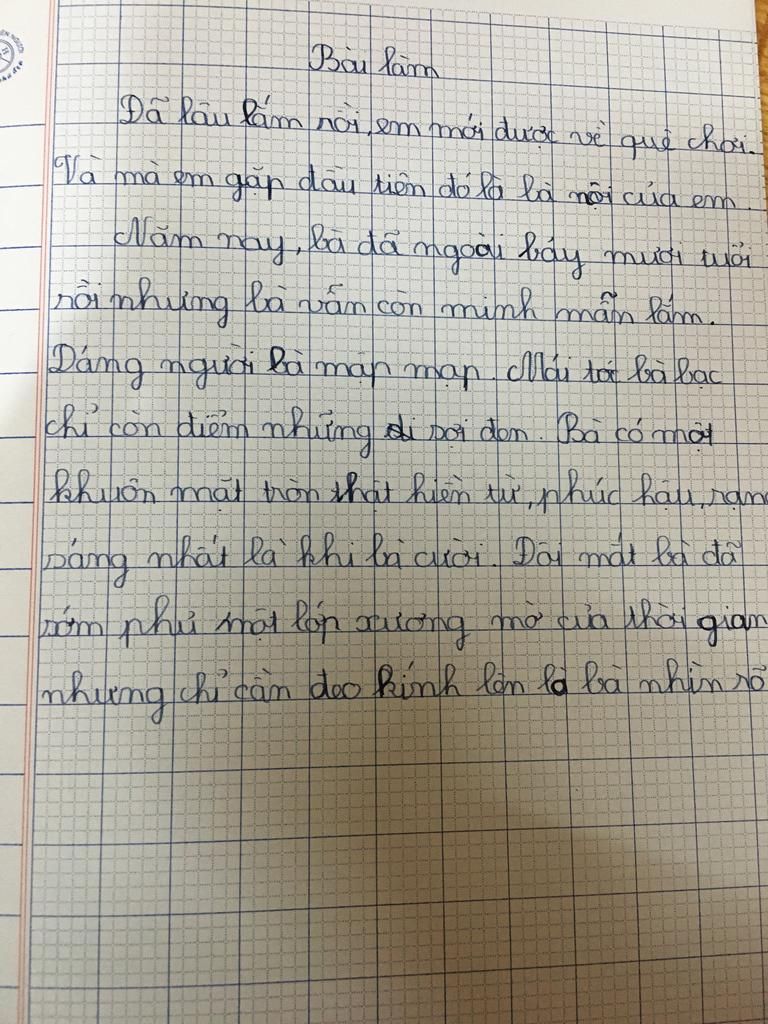 Bài làm
Đã lâu lắm rồi, em mới được về quê chơi.
Và mà em gặp đầu tiên đó là bà nội của em.
Năm nay, bà đã ngoài bảy mươi tuổi
rồi nhưng bà vẫn còn minh mẫn lắm.
Dáng người bà mập mạp. Mái tóc bà bạc
chỉ còn điểm những sợi đen. Bà có một
khuôn mặt tròn thật hiền từ, phúc hậu, rạng
sáng nhất là khi bà cười. Đôi mắt bà đã
sớm phủ một lớp sương mờ của thời gian
nhưng chỉ cần đeo kính lên là bà nhìn rõ